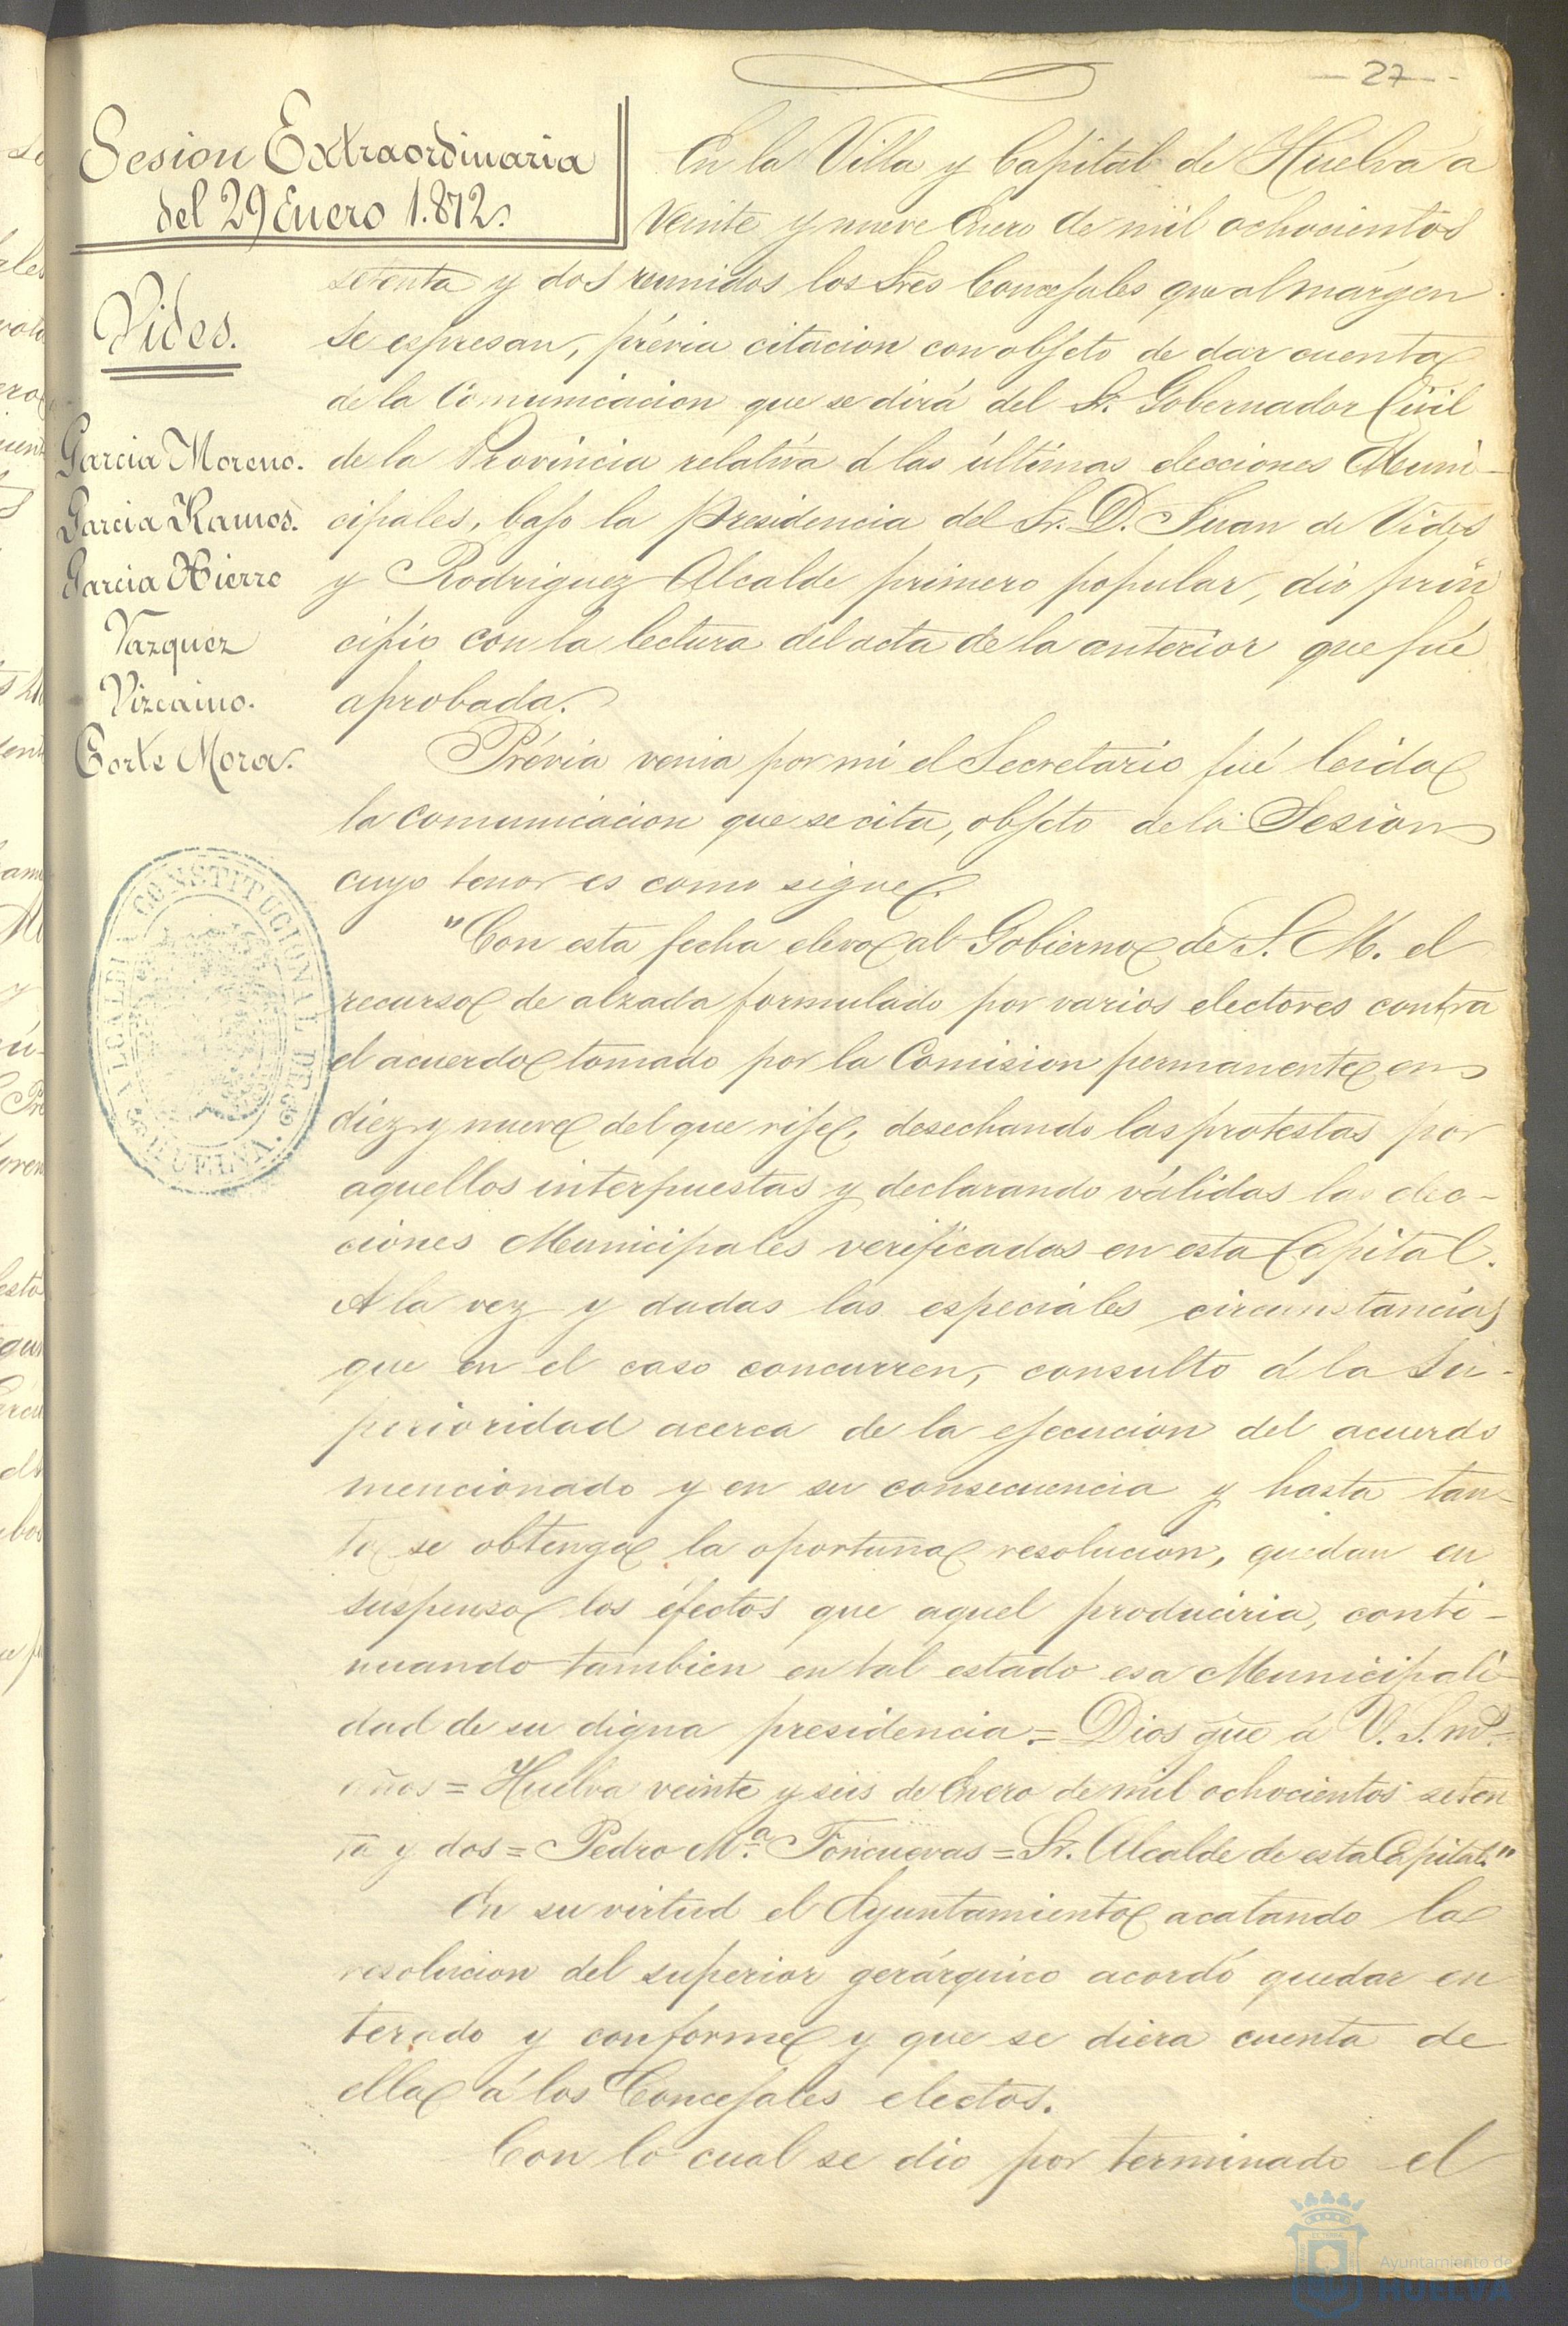 27
Sesion Extraordinaria
del 29 Enero 1.872.
Vides.
Garcia Moreno.
Garcia Ramos.
Garcia Hierro
Vazquez
Vizcaino.
Corte Mora.
En la Villa y Capital de Huelva á
veinte y nueve Enero de mil ochocientos
setenta y dos reunidos los Sres Concejales que al márgen
se espresan, prévia citacion con objeto de dar cuenta
de la Comunicacion que se dirá del Sr. Gobernador Civil
de la Provincia relativa á las últimas elecciones Muni-
cipales, bajo la presidencia del Sr. D. Juan de Vides
y Rodriguez Alcalde primero popular, dió prin
cipio con la lectura del acta de la anterior que fué
aprobada.
Prévia venia por mi el Secretario fué leida
la comunicacion que se cita, objeto de la Sesion
cuyo tenor es como sigue.
"Con esta fecha elevo al Gobierno de S. M. el
recurso de alzada formulado por varios electores contra
el acuerdo tomado por la Comision permanente en
diez y nueve del que rije, desechando las protestas por
aquellos interpuestas y declarando válidas las elec-
ciones Municipales verificadas en esta Capital.
A la vez y dadas las especiales circunstancias
que en el caso concurren, consulto á la Su-
perioridad acerca de la ejecucion del acuerdo
mencionado y en su consecuencia y hasta tan-
to se obtenga la oportuna resolucion, quedan en
suspenso los efectos que aquel produciria, conti-
nuando tambien en tal estado esa Municipali-
dad de su digna presidencia.= Dios gue á V. S. ms.
años = Huelva veinte y seis de Enero de mil ochocientos seten
ta y dos = Pedro M.ª Foncuevas = Sr. Alcalde de esta Capital."
En su virtud el Ayuntamiento acatando la
resolucion del superior gerárquico acordó quedar en
terado y conforme y que se diera cuenta de
ella á los Concejales electos.
Con lo cual se dio por terminado el
ALCALDIA CONSTITUCIONAL DE HUELVA.
Ayuntamiento de
HUELVA